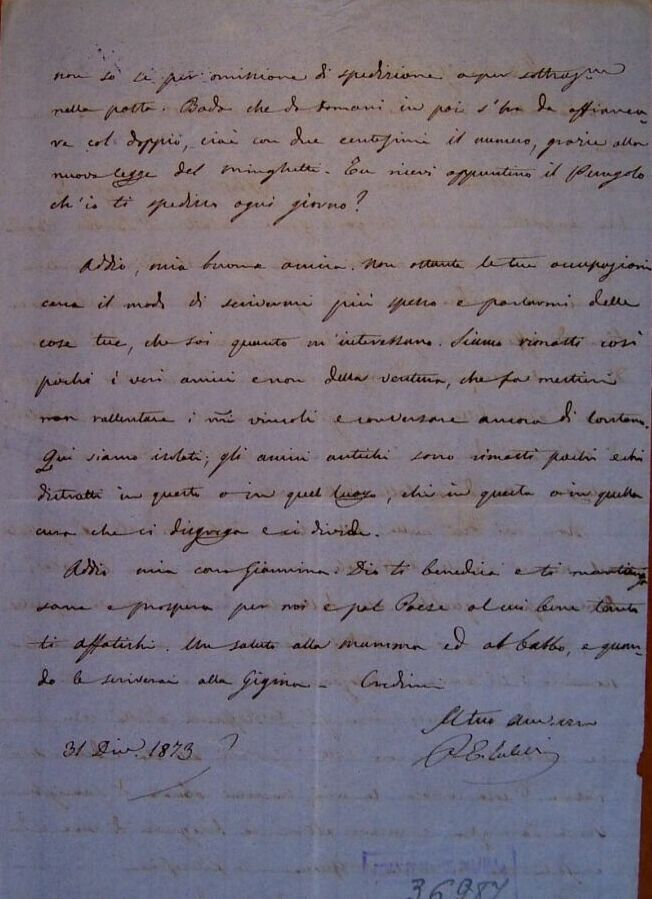 non so se per omissione di spedizione o per
nella posta. Bada che da domani in poi s'ha da affranca-
re col doppio, cioè con due centesimi il numero, grazie alla
nuova legge del Minghetti. Tu ricevi appuntino il Pungolo
ch'io ti spedisco ogni giorno?
Addio, mia buona amica. Non ostante le tue occupazioni
cerca il modo di scrivermi più spesso e parlarmi delle
cose tue, che sai quanto m'interessano. Siamo rimasti così
pochi i veri amici e non della ventura, che fa mestieri
non rallentare i vincoli e conversare ancora di lontano.
Qui siamo isolati; gli amici antichi sono rimasti pochi e chi
distratti in questo o in quel luogo, chi in questa o in quella
cura che ci disgrega e ci divide.
Addio mia cara Giannina. Dio ti benedica e ti mantenga
sana e prospera per noi e pel Paese al cui bene tanto
ti affatichi. Un saluto alla mamma ed al babbo, e quan-
do le scriverai alla Gigina. Credimi
Il tuo
31 Dic. 1873 ?
36987